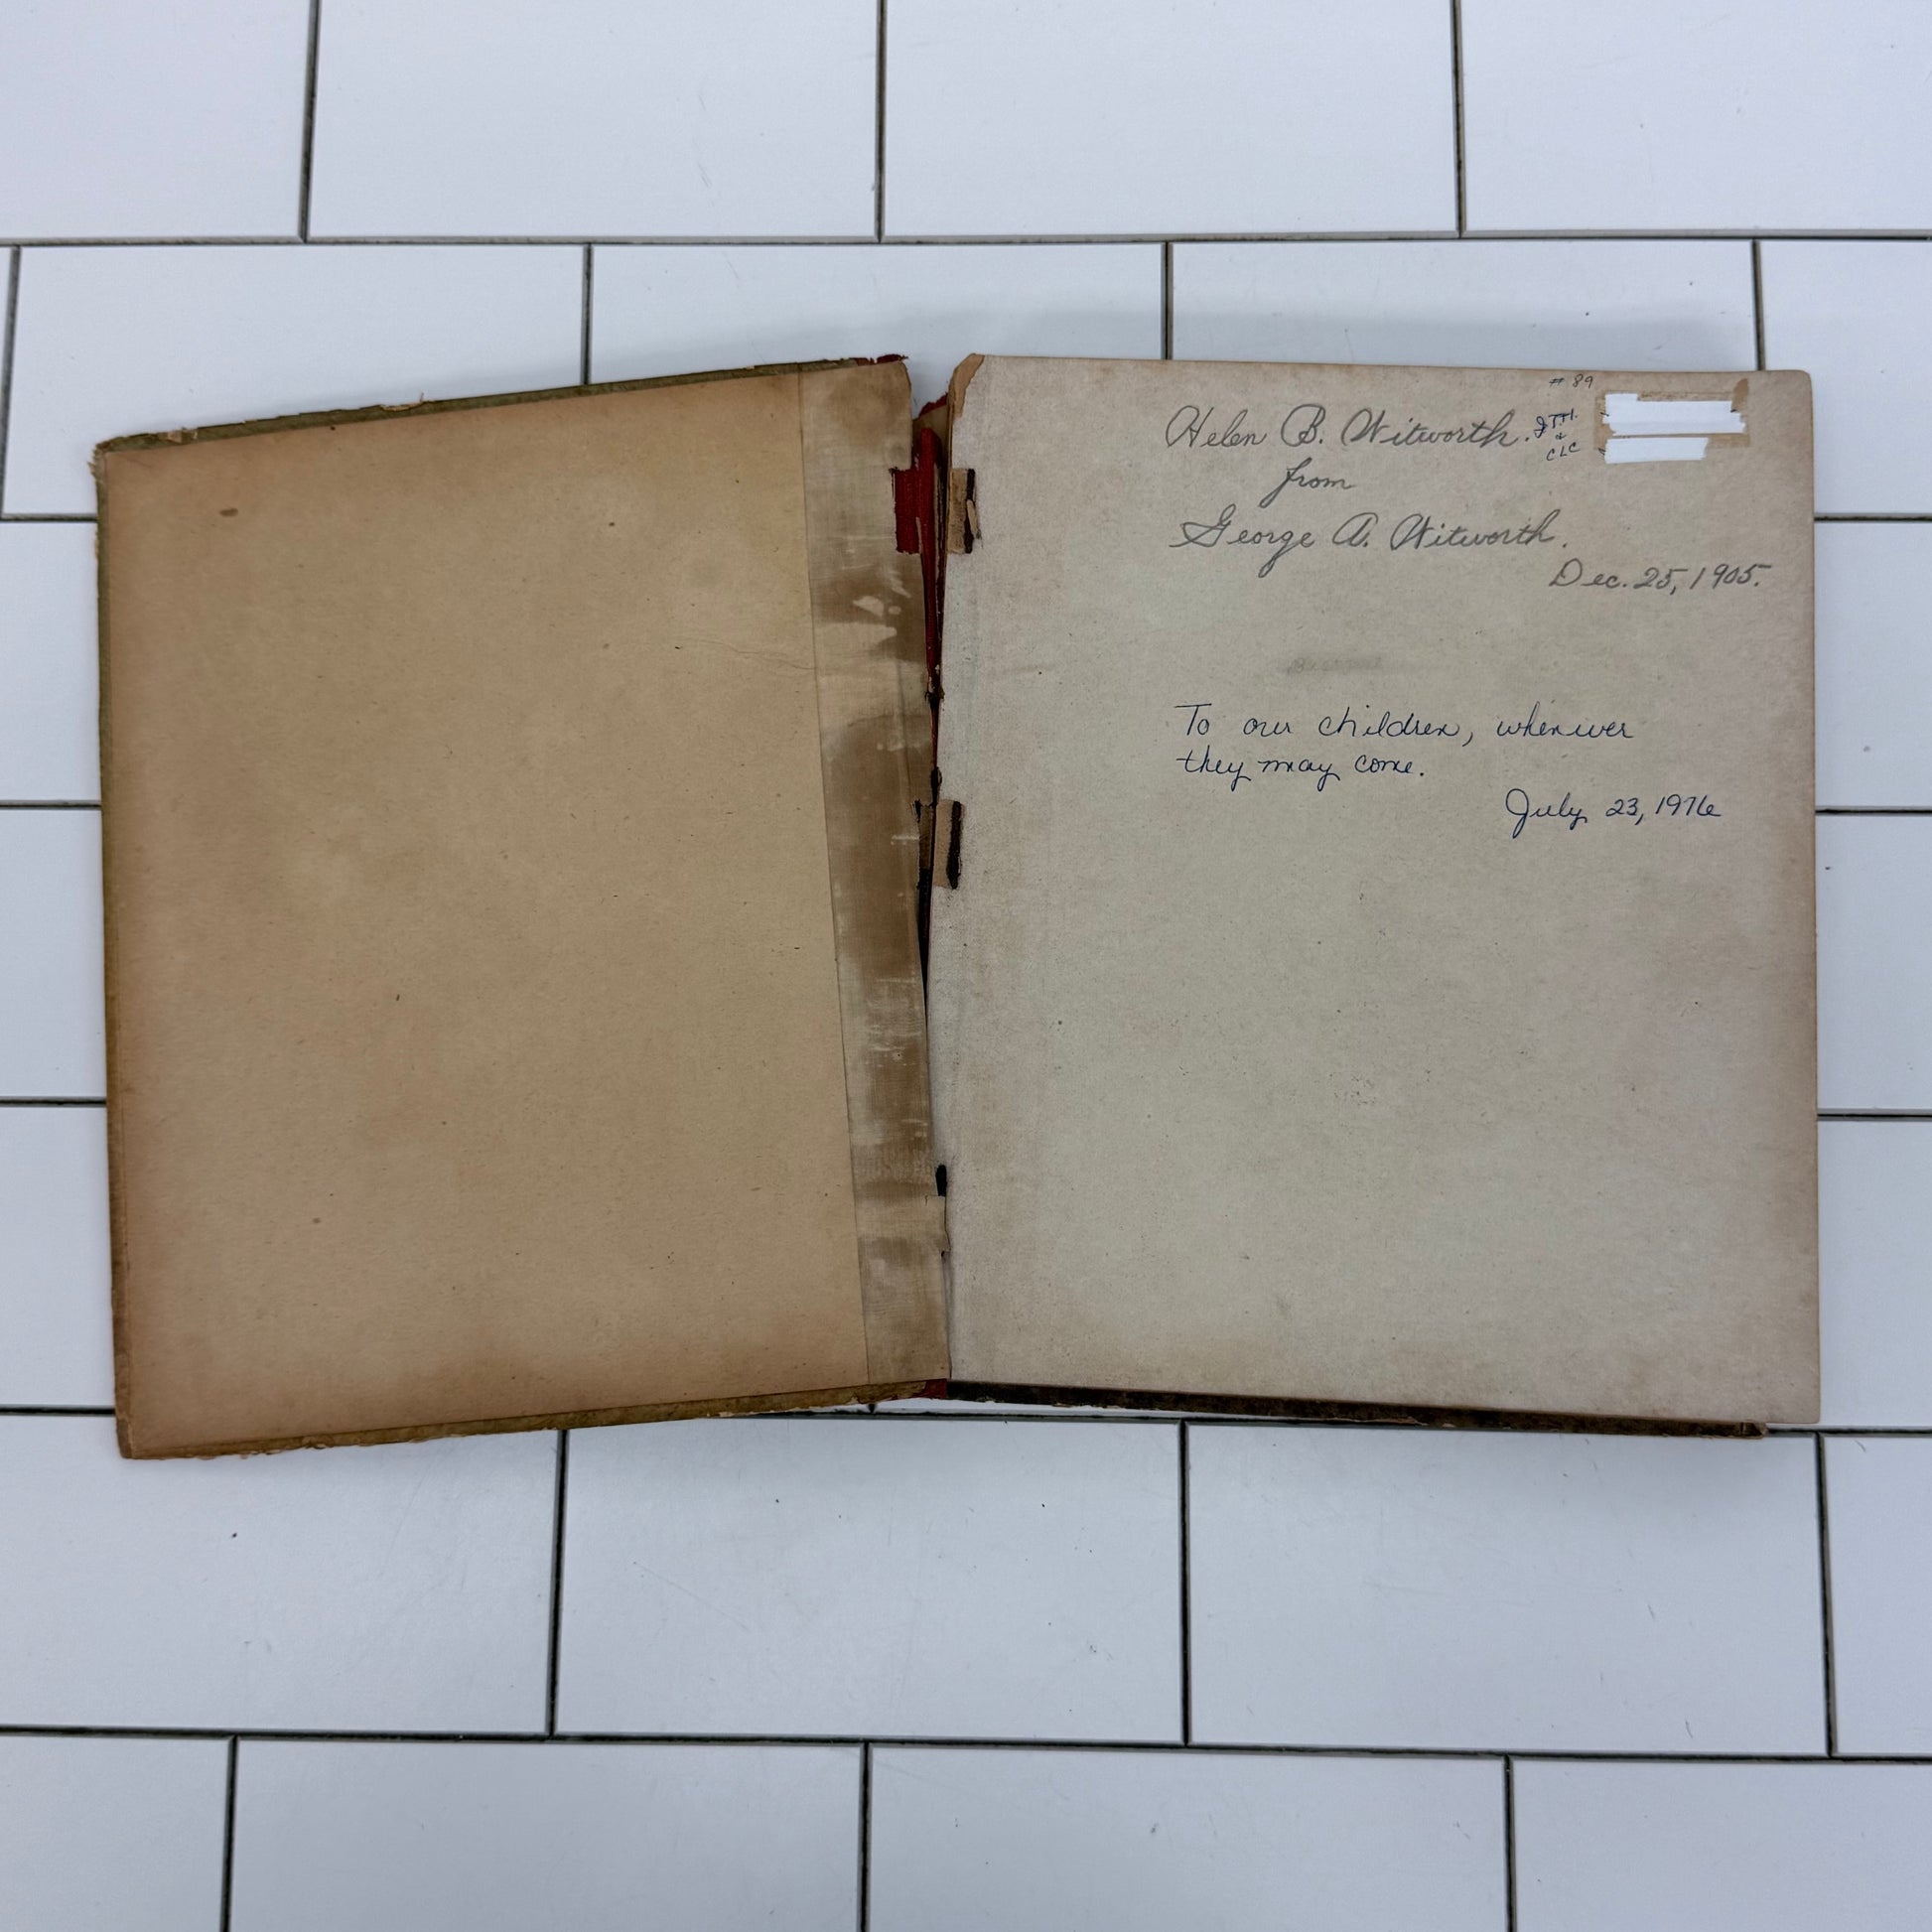 # 89
Helen B. Witworth. JTH.
&
CLC
from
George A. Witworth.
Dec. 25, 1905.
To our children, whenever
they may come.
July 23, 1976